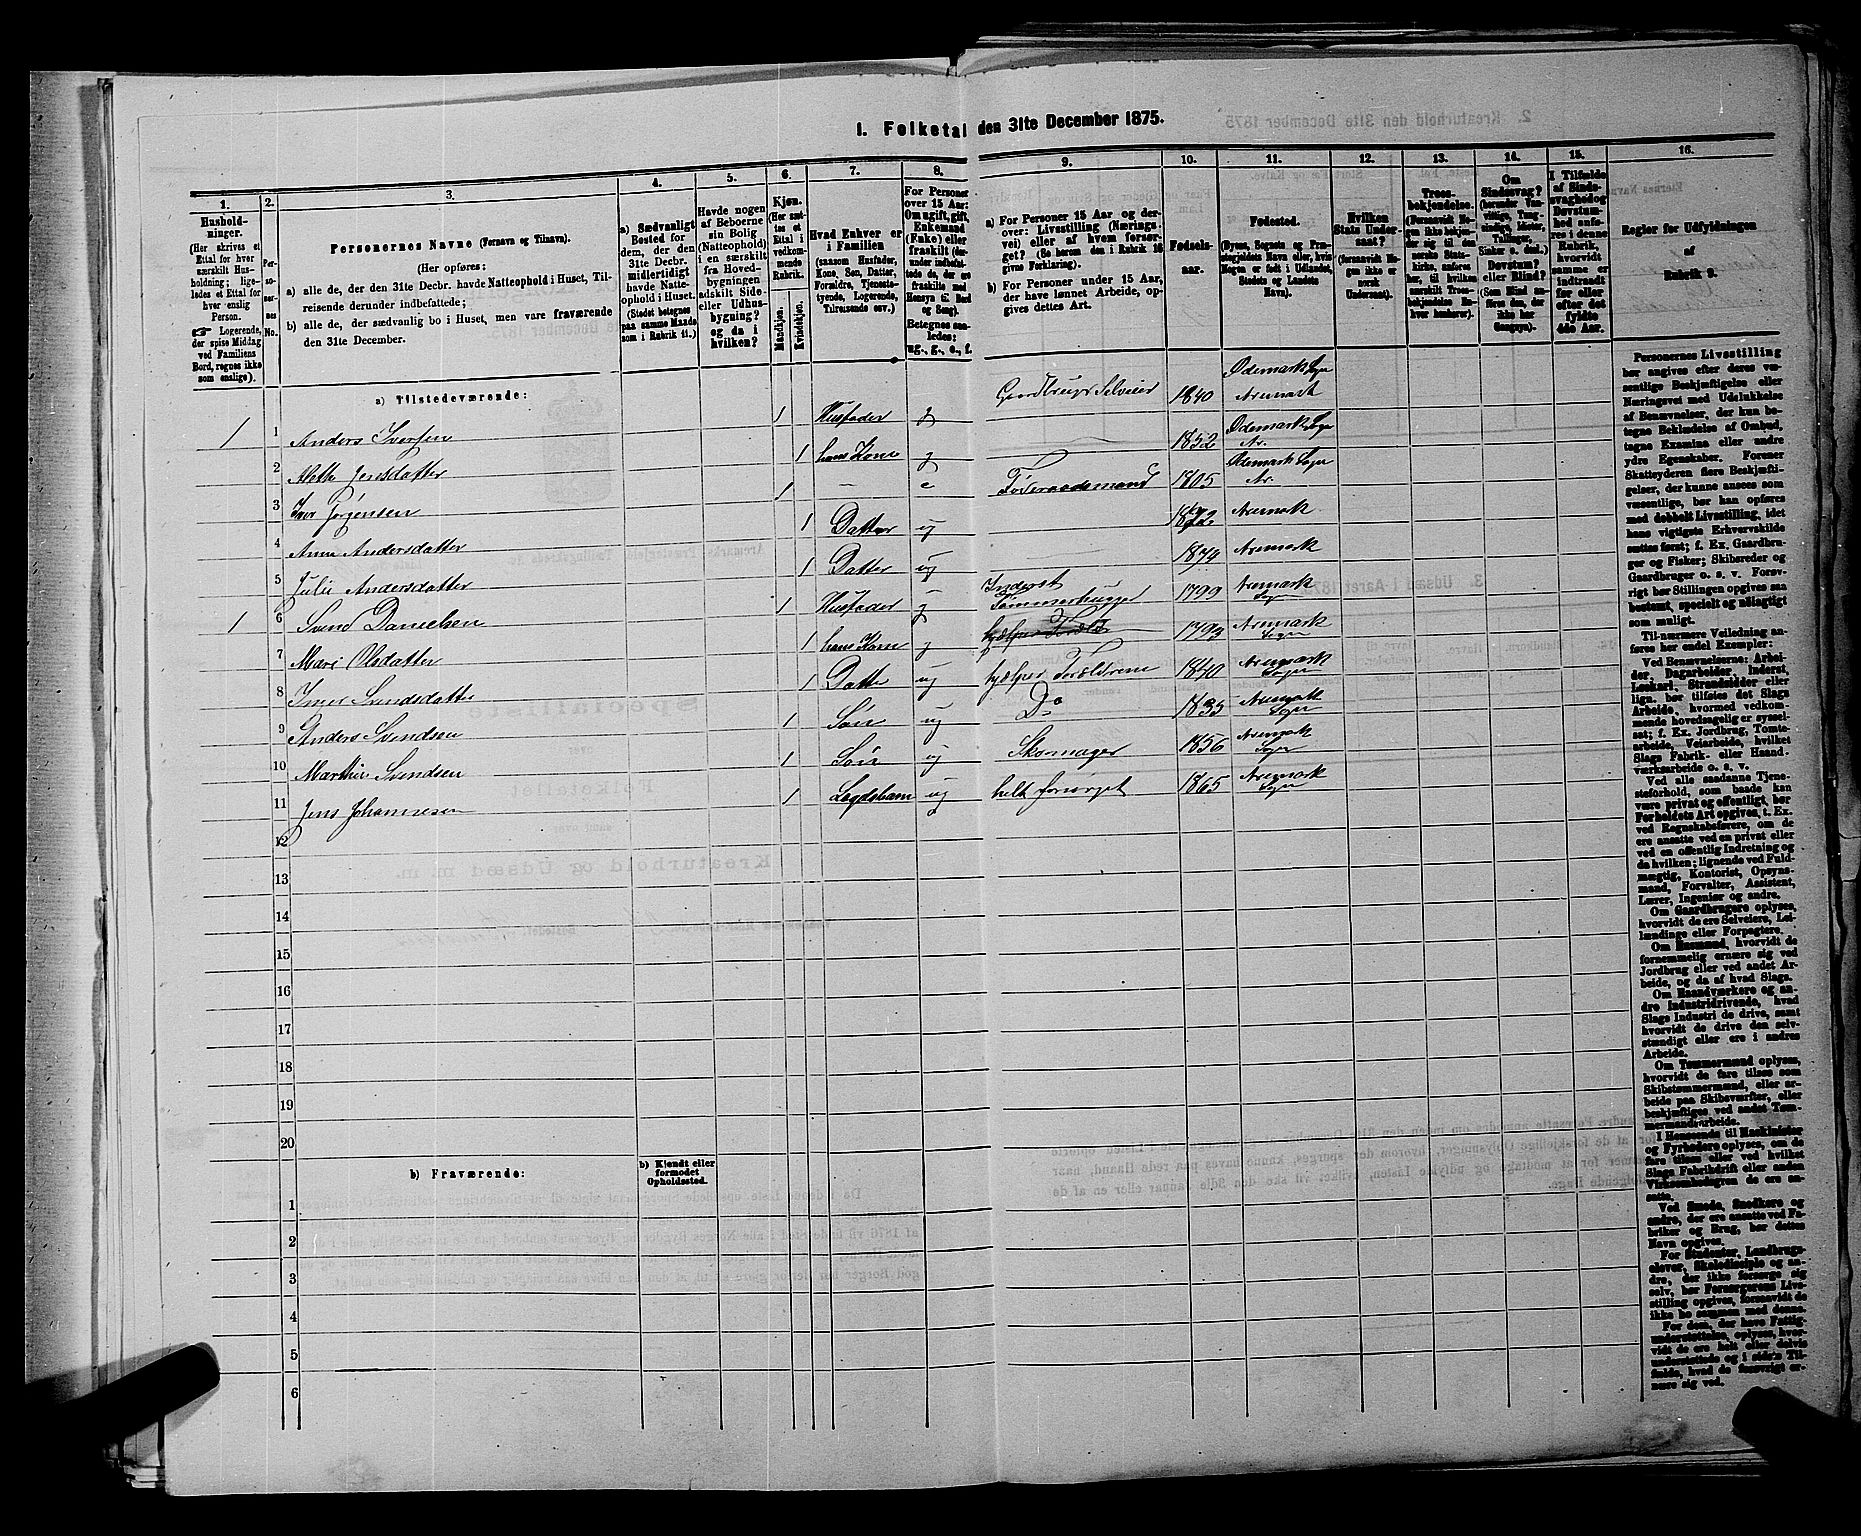 I. Folketal den 31te December 1875.
1.
2.
3.
4.
5.
6.
7.
8.
9.
10.
11.
12.
13.
14.
15.
16.
Hushold-
ninger.
(Her skrives et
Ettal for hver
særskilt Hus-
holdning; lige-
ledes et Ettal for
hver enslig
Person.
☞ Logerende,
der spise Middag
ved Familiens
Bord, regnes ikke
som enslige).
Per-
so-
ner-
nes
No.
Personernes Navne (Fornavn og Tilnavn).
(Her opføres:
a) alle de, der den 31te Decbr. havde Natteophold i Huset, Til-
reisende derunder indbefattede;
b) alle de, der sædvanlig bo i Huset, men vare fraværende
den 31te December.
a) Sædvanligt
Bosted for
dem, der den
31te Decbr.
midlertidigt
havde Natte-
ophold i Huset.
(Stedet betegnes
paa samme Maade
som i Rubrik 11.)
Havde nogen
af Beboerne
sin Bolig
(Natteophold)
i en særskilt
fra Hoved-
bygningen
adskilt Side-
eller Udhus-
bygning?
og da i
hvilken?
Kjøn.
(Her sæt-
tes et
Ettal i
vedkom-
mende
Rubrik.
Mandkjøn.
Kvindekjøn.
Hvad Enhver er
i Familien
(saasom Husfader,
Kone, Søn, Datter,
Forældre, Tjeneste-
tyende, Logerende,
Tilreisende osv.)
For Personer
over 15 Aar:
Om ugift, gift,
Enkemand
(Enke) eller
fraskilt (her-
under indbefat-
tede de, der ere
fraskilte med
Hensyn til Bord
og Seng).
Betegnes saa-
ledes:
ug., g., e., f.
a) For Personer 15 Aar og der-
over: Livsstilling (Nærings-
vei) eller af hvem forsør-
get? (Se herom den i Rubrik 16
givne Forklaring).
b) For Personer under 15 Aar,
der have lønnet Arbeide, op-
gives dettes Art.
Fødsels-
aar.
Fødested.
(Byens, Sognets og Præ-
stegjeldets Navn eller, hvis
Nogen er født i Udlandet,
Stedets og Landets
Navn.)
Hvilken
Stats Under-
saat?
(forsaavidt No-
gen ikke er
norsk
Undersaat).
Troes-
bekjendelse.
(Forsaavidt No-
gen ikke bekjen-
der sig til den
norske Stats-
kirke, anføres
her, til hvilken
særskilt Troes-
bekjendelse En-
hver henhører).
Om
Sindssvag?
(herunder Van-
vittige, Tung-
sindige, Idioter,
Tullinger,
Sinker o. desl.)
Døvstum?
eller Blind?
(Som Blind an-
føres den, der
ikke har
Gangsyn).
I Tilfælde
af Sinds-
svaghed og
Døvstum-
hed anfø-
res i denne
Rubrik,
hvorvidt
samme er
indtraadt
før eller
efter det
fyldte
4de Aar.
Regler for Udfyldningen
af
Rubrik 9.
a) Tilstedeværende:
1 1 Anders Iversen 1 Husfader g Gaardbruger Selveier 1840 Ødemark Sogn Aremark
2 Mette Jensdatter 1 hans Kone g 1852 Ødemark Sogn Ar.
3 Iver Jørgensen 1 — e Føderaadsmand 1805 Ødemark Sogn Ar.
4 Anne Andersdatter 1 Datter ug Aremark
5 Julie Andersdatter 1 Datter ug 1874 Aremark
1 6 Svend Danielsen 1 Husfader g Inderst Tømmerhugger 1799 Aremark Sogn
7 Mari Olsdatter 1 hans Kone g 1793 Aremark Sogn
8 Svendsdatter 1 Datter ug hjælper Forældrene 1840 Aremark Sogn
9 Anders Svendsen 1 Søn ug Do 1835 Aremark Sogn
10 Marthin Svendsen 1 Søn ug Skomager 1856 Aremark Sogn
11 Jens Johannesen 1 Lægdsbarn ug helt forsørget 1865 Aremark Sogn
12
13
14
15
16
17
18
19
20
b) Fraværende:
b) Kjendt eller
formodet
Opholdssted.
1
2
3
4
5
6
Personernes Livsstilling
bør angives efter deres væ-
sentlige Beskjæftigelse eller
Næringsvei med Udelukkelse
af Benævnelser, der kun be-
tegne Beklædelse af Ombud,
tagne Examina eller andre
ydre Egenskaber. Forener
Skatteyderen flere Beskjæfti-
gelser, der kunne ansees som
væsentlige, bør han opføres
med dobbelt Livsstilling, idet
hans vigtigste Erhvervskilde
sættes først; f. Ex. Gaardbru-
ger og Fisker; Skibsreder og
Gaardbruger o. s. v. Forøv-
rigt bør Stillingen opgives saa
bestemt, specielt og nøiagtigt
som muligt.
Til nærmere Veiledning an-
føres her endel Exempler:
Ved Benævnelserne: Arbei-
der, Dagarbeider, Inderst,
Løskarl, Strandsidder eller
lign. bør tilføies det Slags
Arbeide, hvormed vedkom-
mende hovedsagelig er syssel-
sat; f. Ex. Jordbrug, Tomte-
arbeide, Veiarbeide, hvilket
Slags Fabrik- eller Haand-
værksarbeide o. s. v.
Ved alle saadanne Tjene-
steforhold, som baade kan
være privat og offentligt, bør
Forholdets Art opgives, t. Ex.
ved Regnskabsførere, om de
ere ansatte ved en privat eller
ved en offentlig Indretning og
da hvilken; lignende ved Fuld-
mægtig, Kontorist, Opsyns-
mand, Forvalter, Assistent,
Lærer, Ingeniør og andre.
Om Gaardbrugere oplyses,
hvorvidt de ere Selveiere, Lei-
lændinge eller Forpagtere.
Om Husmænd, hvorvidt de
fornemmelig ernære sig ved
Jordbrug eller ved andet Ar-
beide, og da af hvad Slags.
Om Haandværkere og an-
dre Industridrivende, hvad
Slags Industri de drive, samt
hvorvidt de drive den selv-
stændigt eller ere i andres
Arbeide.
Om Tømmermænd oplyses,
hvorvidt de fare tilsøs som
Skibstømmermænd, eller ar-
beide paa Skibsværfter, eller
beskjæftiges ved andet Tøm-
mermandsarbeide.
I Henseende til Maskinister
og Fyrbødere oplyses, om de
fare tilsøs eller ved hvilket
Slags Fabrikdrift eller anden
Virksomhedsgren de ere an-
satte.
Ved Smede, Snedkere og
andre, der ere ansatte ved Fa-
briker og Brug, bør dettes
Navn opgives.
For Studenter, Landbrugs-
elever, Skoledisciple og an-
dre, der ikke forsørge sig
selv, bør Forsørgerens Livs-
stilling opgives, forsaavidt de
ikke bo sammen med denne.
For dem, der have Fattig-
understøttelse, oplyses, hvor-
vidt de ere helt eller delvis
understøttede og i sidste Til-
fælde, hvad de forøvrigt er-
nære sig ved.